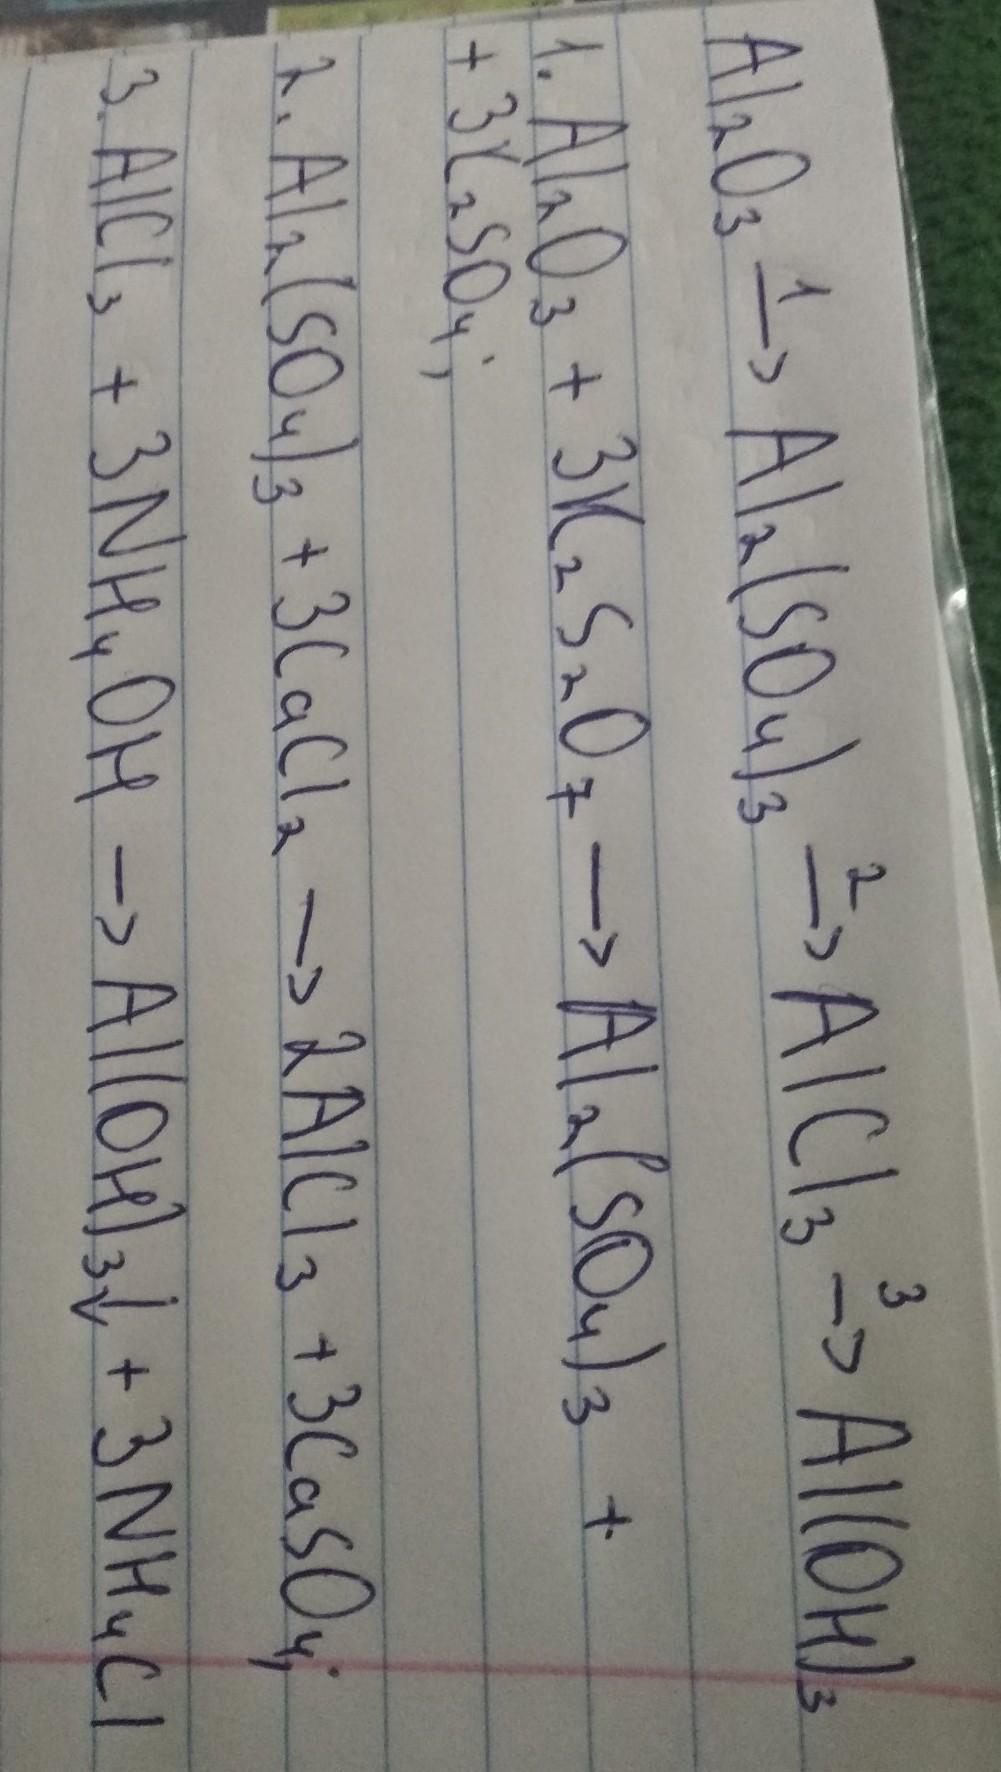 Al₂O₃ →¹ Al₂(SO₄)₃ →² AlCl₃ →³ Al(OH)₃
1. Al₂O₃ + 3K₂S₂O₇ → Al₂(SO₄)₃ +
+ 3K₂SO₄;
2. Al₂(SO₄)₃ + 3CaCl₂ → 2AlCl₃ + 3CaSO₄;
3. AlCl₃ + 3NH₄OH → Al(OH)₃↓ + 3NH₄Cl